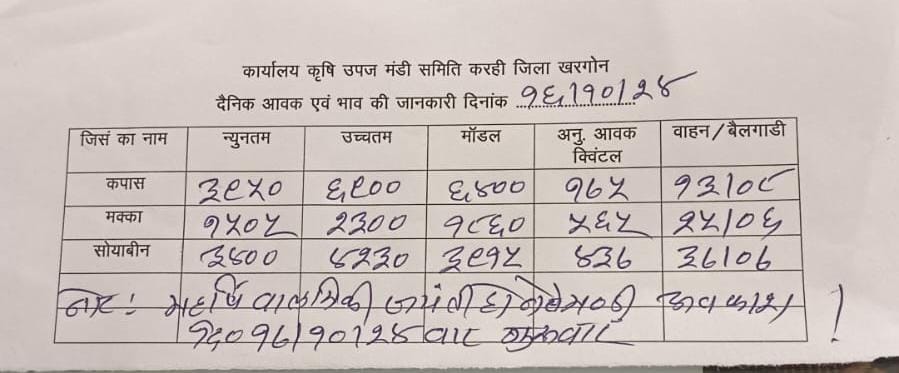 कार्यालय कृषि उपज मंडी समिति करही जिला खरगोन
दैनिक आवक एवं भाव की जानकारी दिनांक १६/१०/२४
जिसं का नाम न्युनतम उच्चतम मॉडल अनु. आवक क्विंटल वाहन/बैलगाडी
कपास ३९५० ६९०० ६४०० १७५ १३/०८
मक्का १५०५ २३०० १८६० ५६५ २५/०६
सोयाबीन ३४०० ४२३० ३९१५ ४३७ ३७/०७
नोट : महर्षि वाल्मिकी जयंती होने से मण्डी अवकाश !
१७/१०/२४ वार गुरूवार